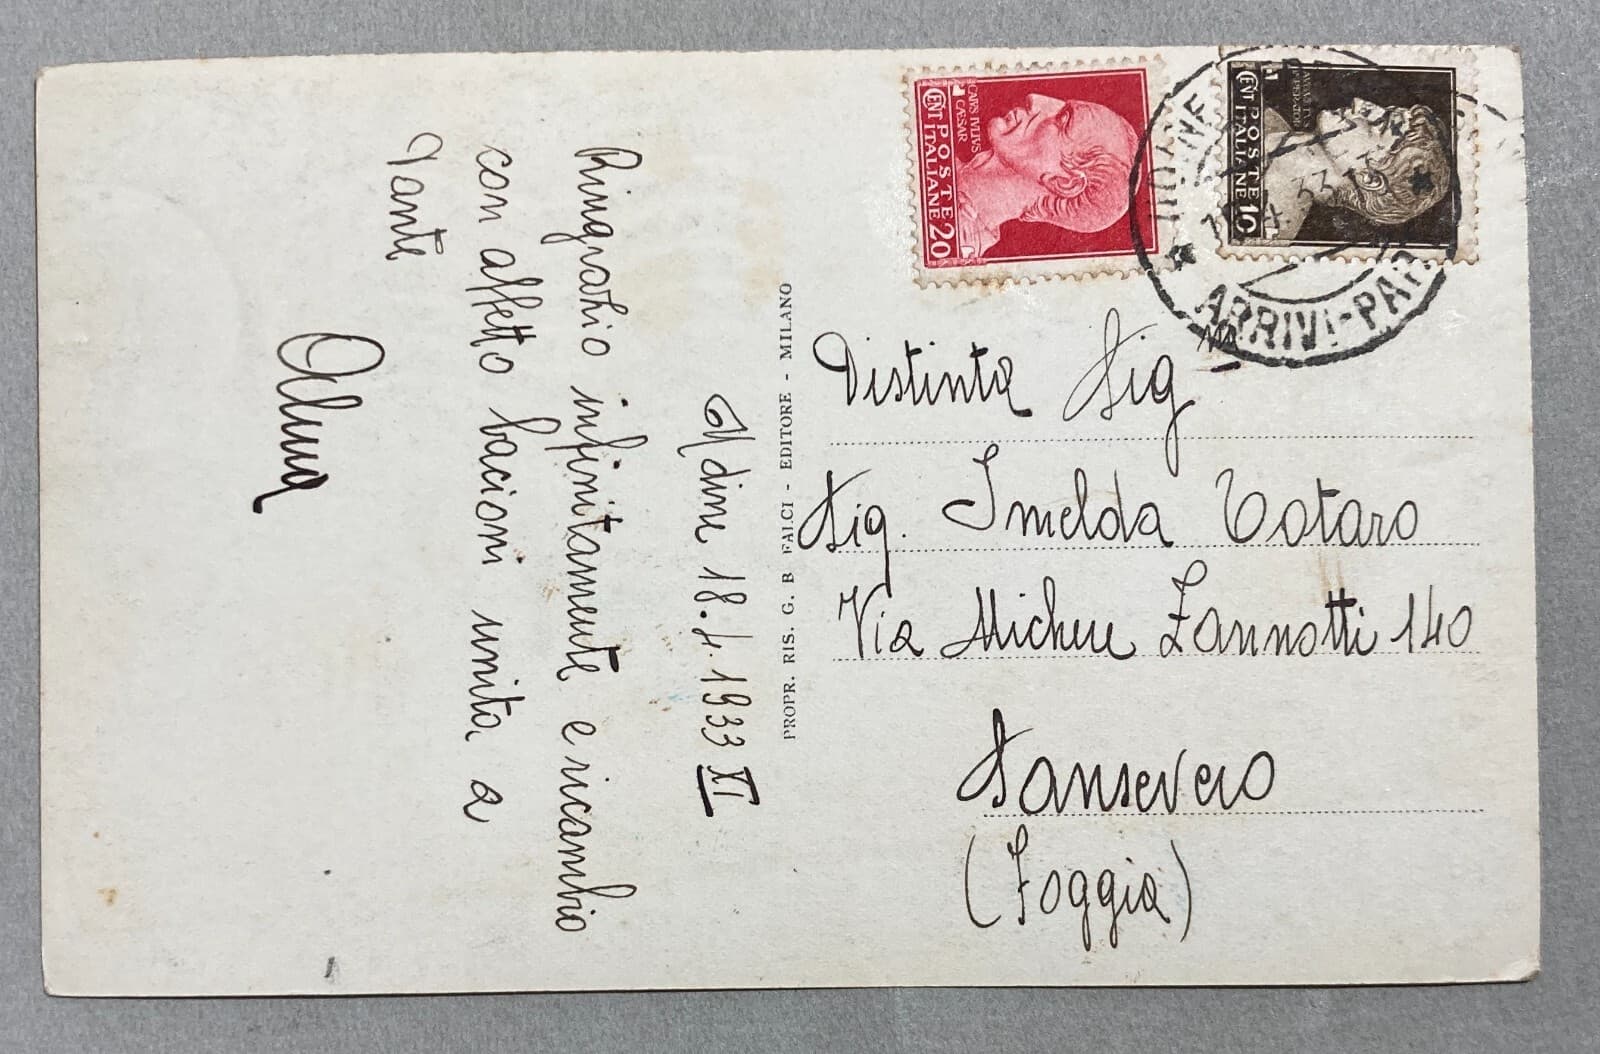 Udine 18.4.1933 XI
Ringrazio infinitamente e ricambio
con affetto bacioni unita a
Tante
Alma
PROPR. RIS. G. B FALCI - EDITORE - MILANO
CAIVS IVLIVS
CAESAR
CENT POSTE 20
ITALIANE
CENT POSTE 10
ITALIANE
UDINE
4.33.
ARRIVI-PAR
Distinta Sig
Sig. Imelda Totaro
Via Michele Zannotti 140
Sansevero
(Foggia)